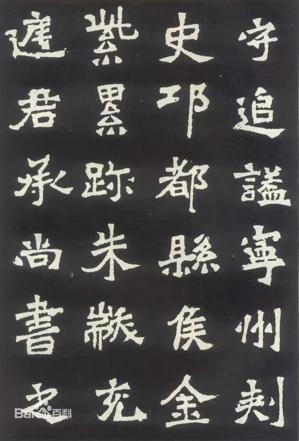 守追謚寧州刾
史邛都縣侯金
紫累跡朱黻充
庭君承尚書之
Bai百科